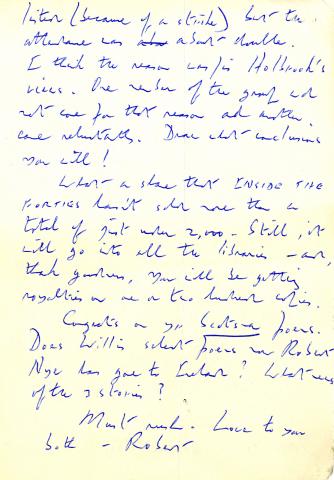 listen (because of a strike) but the
attendance was also about double.
I think the reason was/is Holbrook's
views. One member of the group did
not come for that reason and another
came reluctantly. Draw what conclusions
you will!
What a shame that INSIDE THE
FORTIES hasn't sold more than a
total of just under 2,000. Still, it
will go into all the libraries – and,
thank goodness, you will be getting
royalties on one or two hundred copies.
Congrats on yr Scotsman poems.
Does Willis select poems now Robert
Nye has gone to Ireland? What news
of the 3 stories?
Must rush. Love to you
both – Robert